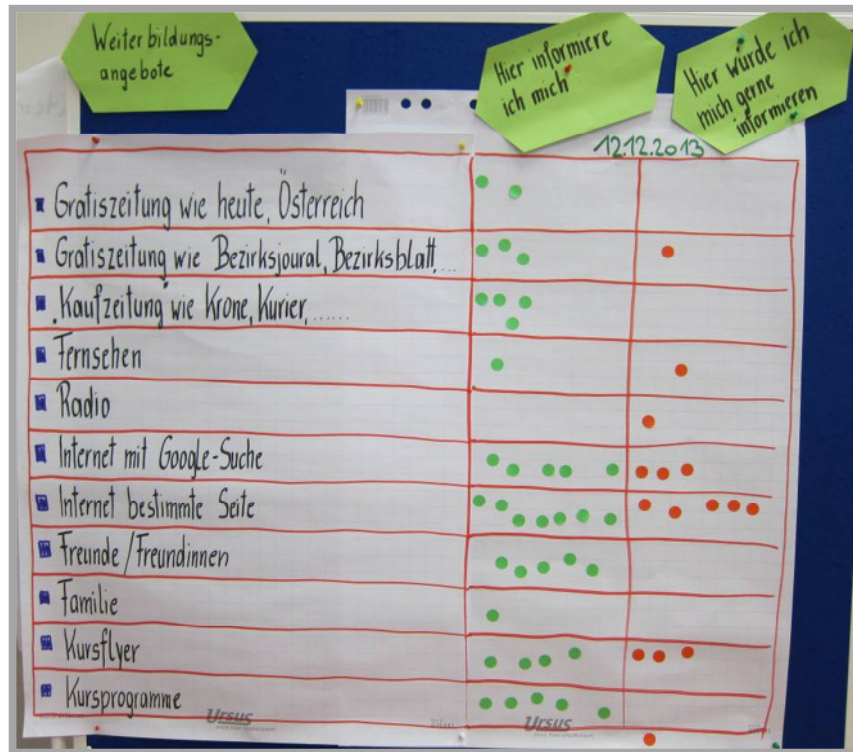 Weiterbildungs-
angebote
Hier informiere
ich mich
Hier würde ich
mich gerne
informieren
12.12.2013
Gratiszeitung wie heute, Österreich
Gratiszeitung wie Bezirksjoural, Bezirksblatt...
Kaufzeitung wie Krone, Kurier, ......
Fernsehen
Radio
Internet mit Google-Suche
Internet bestimmte Seite
Freunde/Freundinnen
Familie
Kursflyer
Kursprogramme
Ursus
Ursus